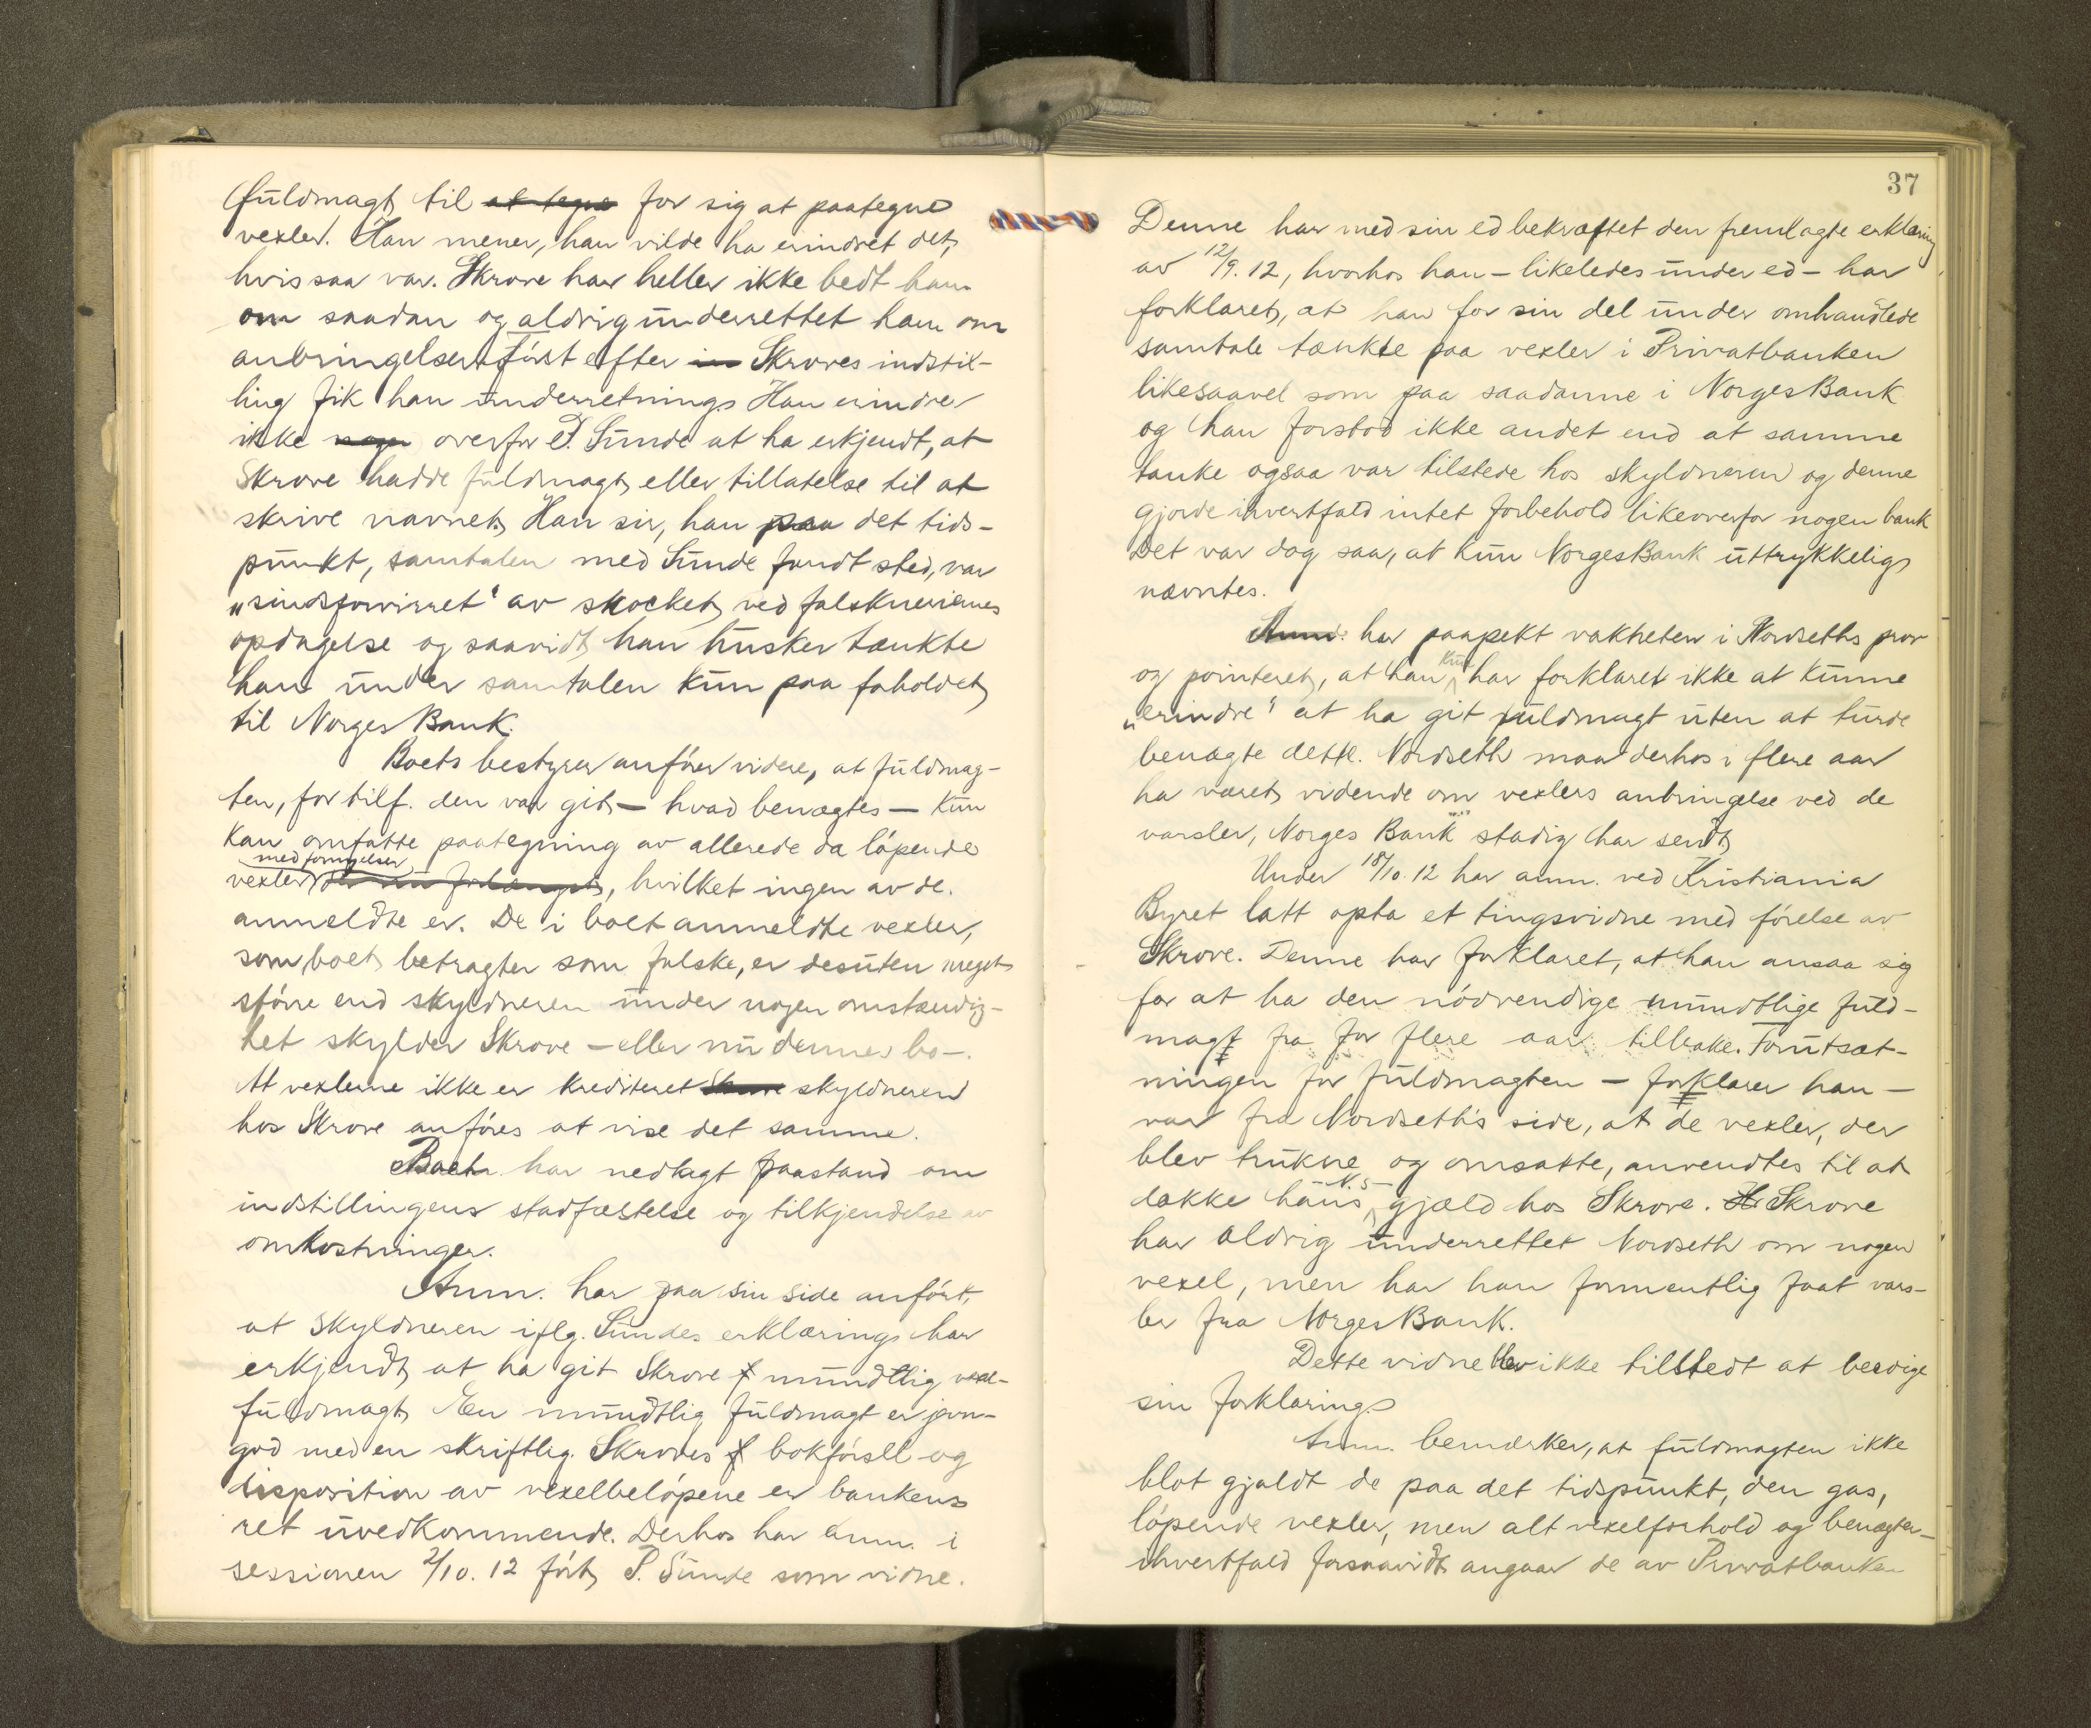 fuldmagt til at tegne for sig at paategne
vexler. Han mener, han vilde ha erindret det,
hvis saa var. Skrove har heller ikke bedt ham
om saadan og aldrig underrettet ham om
anbringelser. Först efter Skroves indstil-
ling fik han underretning. Han erindrer
ikke overfor P. Sunde at ha erkjendt, at
Skrove hadde fuldmagt eller tillatelse til at
skrive navnet. Han sir, han paa det tids-
punkt, samtalen med Sunde fandt sted, var
„sindsforvirret" av skocket ved falskneriernes
opdagelse og saavidt han husker tænkte
han under samtalen kun paa forholdet
til Norges Bank.
Boets bestyrer anförer videre, at fuldmag-
ten, for tilf. den var git – hvad benægtes – kun
kan omfatte paategning av allerede da löpende
med fornyelser
vexler, hvilket ingen av de
anmeldte er. De i boet anmeldte vexler,
som boet betragter som falske, er desuten meget
större end skyldneren under nogen omstændig-
het skylder Skrove – eller nu dennes bo –.
At vexlerne ikke er krediteret Skrove skyldneren
hos Skrove anföres at vise det samme.
Boet har nedlagt paastand om
indstillingens stadfæstelse og tilkjendelse av
omkostninger.
Anm. har paa sin side anfört,
at skyldneren iflg. Sundes erklæring har
erkjendt at ha git Skrove f mundtlig vexel-
fuldmagt. En mundtlig fuldmagt er jevn-
god med en skriftlig. Skroves f bokförsel og
disposition av vexelbelöpene er bankens
ret uvedkommende. Derhos har anm. i
sessionen 2/10. 12 fört P. Sunde som vidne.
37
Denne har med sin ed bekræftet den fremlagte erklæring
av 12/9. 12, hvorhos han – likeledes under ed – har
forklaret, at han for sin del under omhandlede
samtale tænkte paa vexler i Privatbanken
likesaavel som paa saadanne i Norges Bank
og han forstod ikke andet end at samme
tanke ogsaa var tilstede hos skyldneren og denne
gjorde ihvertfald intet forbehold likeoverfor nogen bank
Det var dog saa, at kun Norges Bank uttrykkelig
nævntes.
Anm. har paapekt vakheten i Nordseths prov
kun
og pointeret, at han har forklaret ikke at kunne
„erindre" at ha git fuldmagt uten at turde
benægte dette. Nordseth maa derhos i flere aar
ha været vidende om vexlers anbringelse ved de
varsler, Norges Bank stadig har sendt.
Under 18/10. 12 har anm. ved Kristiania
Byret latt opta et tingsvidne med förelse av
Skrove. Denne har forklaret, at han ansaa sig
for at ha den nödvendige mundtlige fuld-
magt fra for flere aar tilbake. Forutsæt-
ningen for fuldmagten – forklarer han –
var fra Nordseth's side, at de vexler, der
blev trukne og omsatte, anvendtes til at
– N.s –
dække hans gjæld hos Skrove. H Skrove
har aldrig underrettet Nordseth om nogen
vexel, men har han formentlig faat vars-
ler fra Norges Bank.
Dette vidne blev ikke tilstedt at beedige
sin forklaring.
Anm. bemærker, at fuldmagten ikke
blot gjaldt de paa det tidspunkt, den gas,
löpende vexler, men alt vexelforhold og benægter
ihvertfald forsaavidt angaar de av Privatbanken